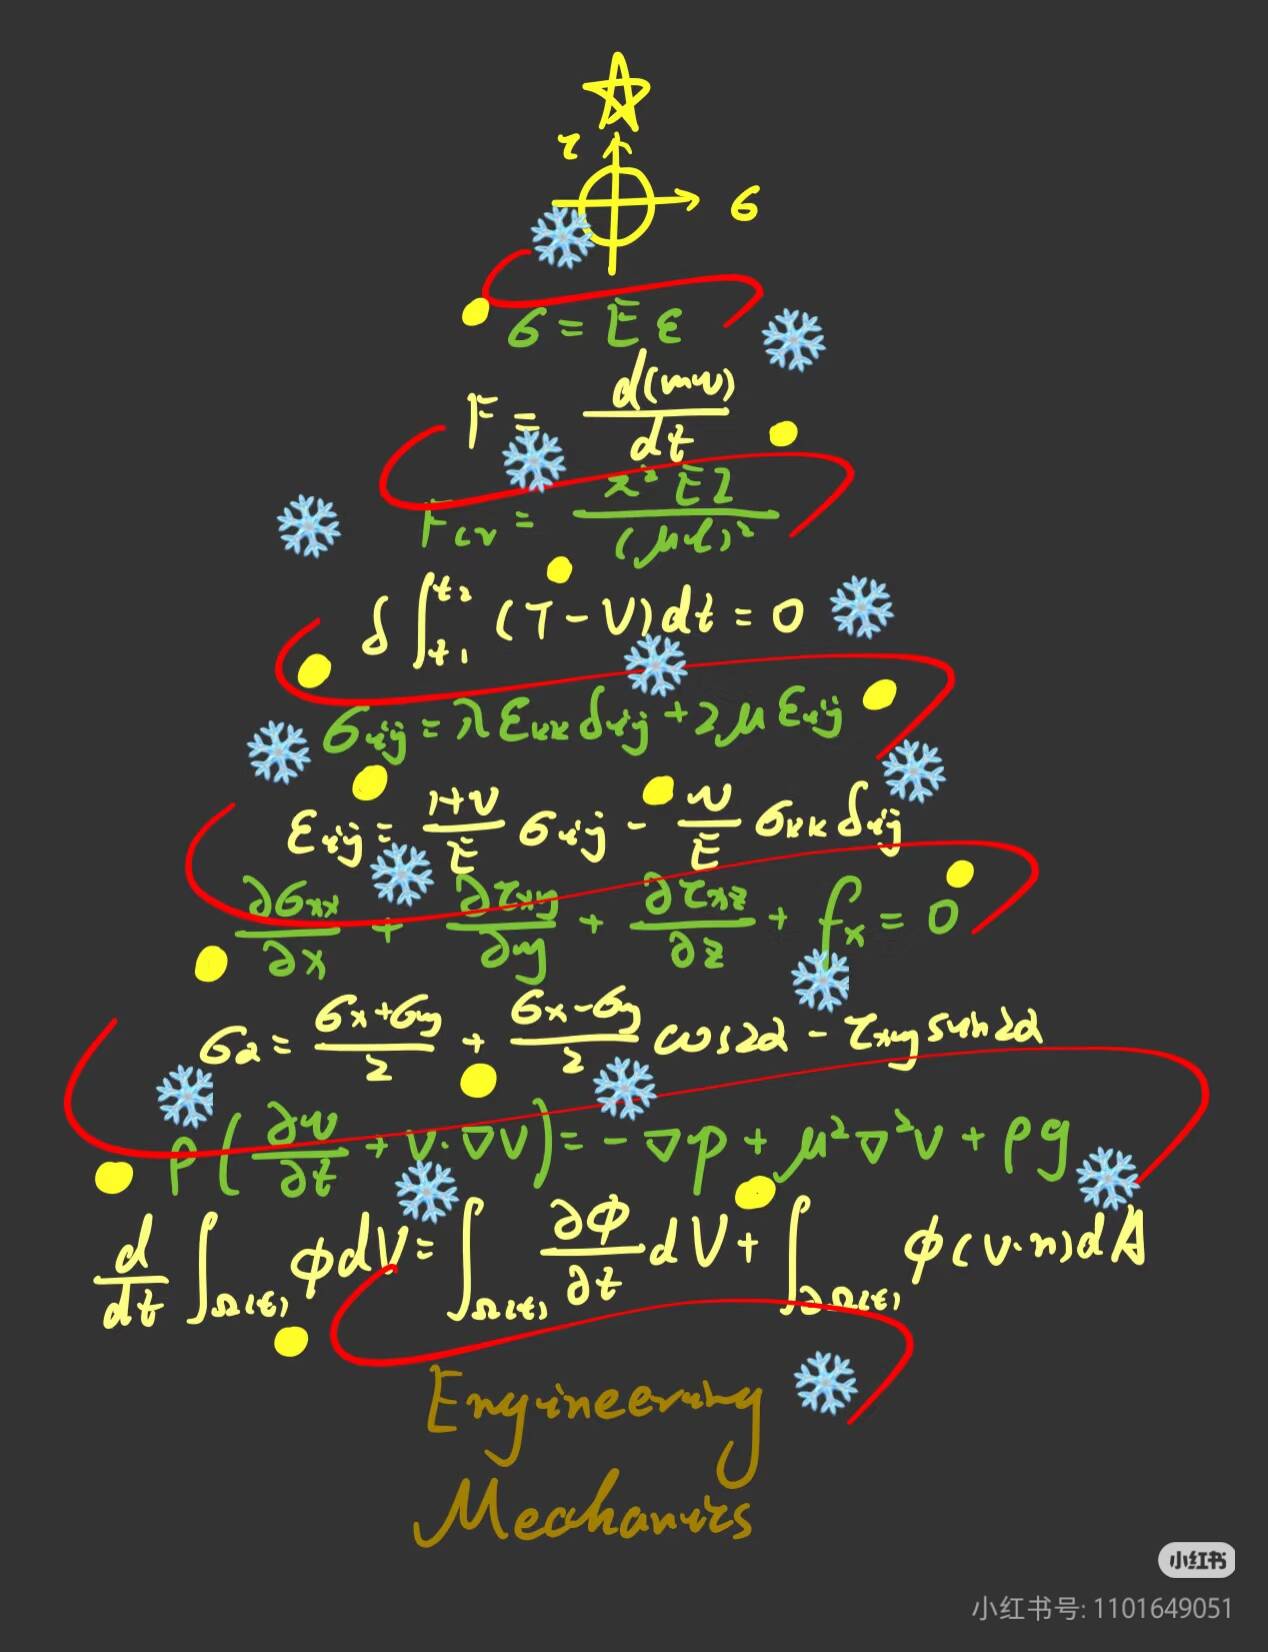 τ
σ
σ = E ε
F = d(mv)/dt
Fcr = π² E I/(μl)²
δ ∫_t₁^t₂ (T − V) dt = 0
σij = λ εkk δij + 2μ εij
εij = (1+ν)/E σij − ν/E σkk δij
∂σxx/∂x + ∂τxy/∂y + ∂τxz/∂z + fx = 0
σα = (σx+σy)/2 + (σx−σy)/2 cos2α − τxy sin2α
ρ(∂v/∂t + v·∇v) = −∇p + μ²∇²v + ρg
d/dt ∫_Ω(t) φdV = ∫_Ω(t) ∂φ/∂t dV + ∫_∂Ω(t) φ(v·n)dA
Engineering
Mechanics
小红书
小红书号: 1101649051